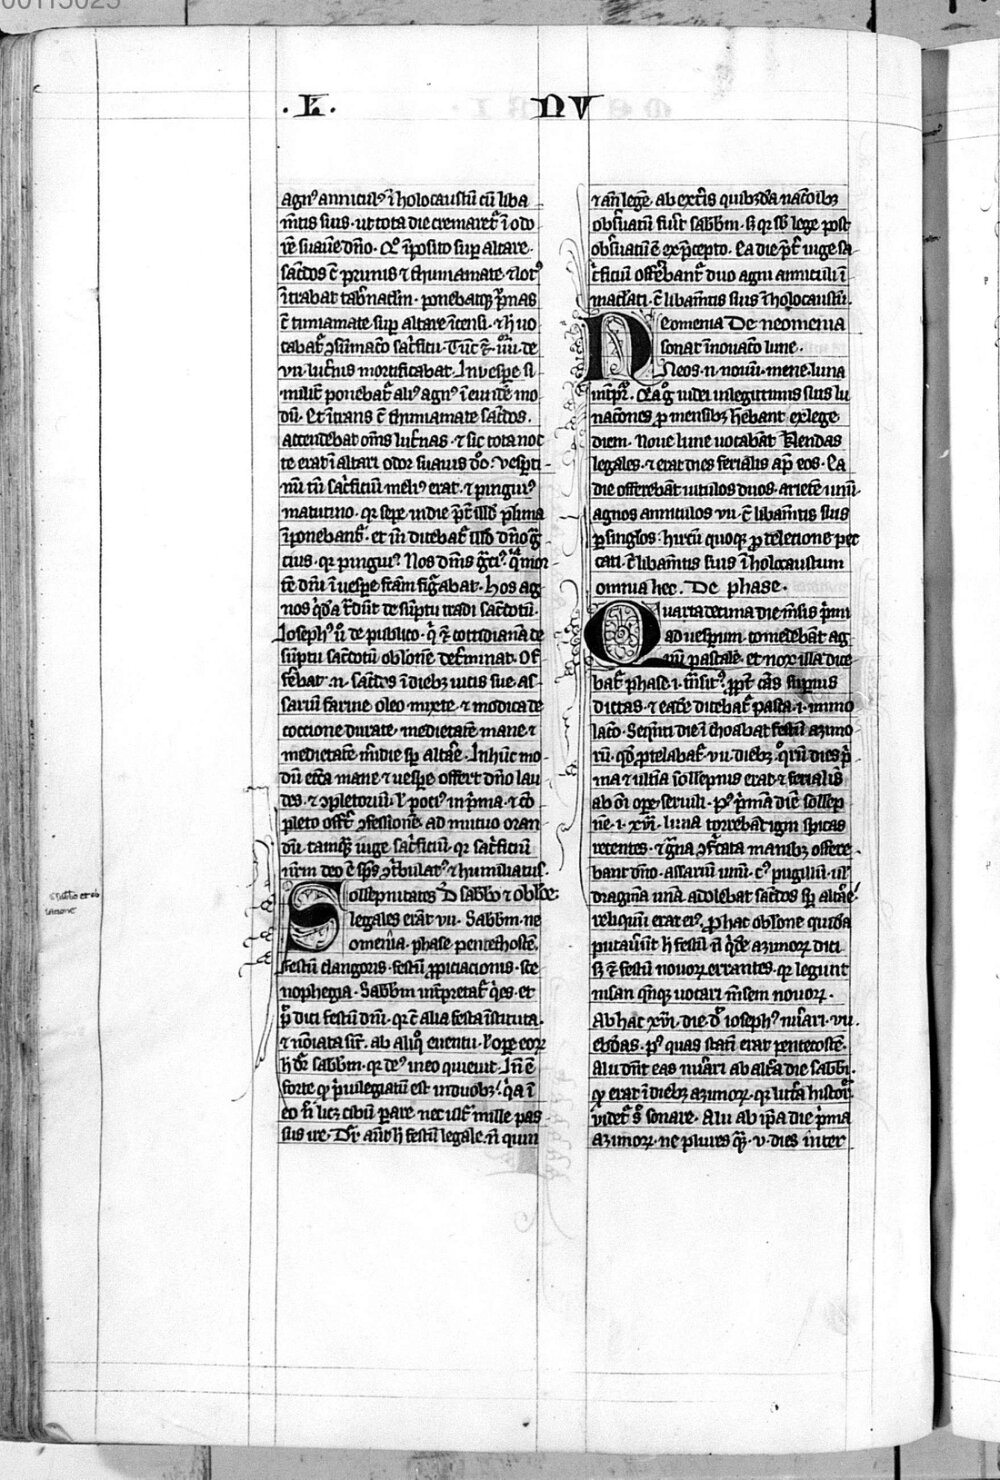 00113023
.L. NV
agn⁹ annicul⁹ ī holocaustū cū liba
m̄tis suis. ut tota die cremaret̄ ī odo
rē suauē dn̄o. Q̄ īposito sup altare
sac̄dos c̄ prunis ⁊ thimiamate ⁊ lot⁹
ītrabat tab̄nac̄lm. ponebatq̄ p̄nas
c̄ timiamate sup altare īcensi. ⁊ h̄ uo
cabat̄ ꝯsūmac̄o sac̄ficii. Tūc ⁊ iiii. de
vii. luc̄nis mortificabat. In uesp̄e si
milit̄ ponebat̄ ali⁹ agn⁹ ī eundē mo
dū. Et ītrans c̄ thimiamate sac̄dos.
accendebat om̄s luc̄nas. ⁊ sic tota noc
te erat ī altari odor suauis dō. Vesp̄ti
nū tn̄ sac̄ficiū meli⁹ erat. ⁊ pingui⁹
matutino. qr sepe in die p̄t̄ illd̄ pl̄ima
īponebant̄. et iō dicebat̄ illd̄ dn̄o gͣ
cius. qr pingui⁹. Nos dn̄s gͣci⁹. q̄ mor
tē dn̄i ī uespe fc̄am figͣbat. Hos ag
nos q̄dā c̄dūt de sūptu tradi sac̄dotū.
Ioseph⁹ u̅ de publico. q̄ ⁊ cotidianā de
sūptu sac̄dotū oblōne det̄minat. Of
fe̅bat. n. sac̄dos ī diebꝫ uicis sue as
sariū farine oleo mixte. ⁊ modica de
coccione durate. medietatē mane ⁊
medietatē m̄idie sp̄ altāe. In hūc mo
dū ecc̄a mane ⁊ uespe offert dn̄o lau
des. ⁊ ꝯpletoriū. l̄ poci⁹ in p̄ma. ⁊ cō
pleto off̄t ꝯfessionē. ad mutuo oran
dū. tamqͣ iuge sac̄ficiū. qr sac̄ficiū
nr̄m deo ē sp̄s ꝯt̄bulat⁹ ⁊ humiliatus.
Sollempnitates D̄ sabb̄o ⁊ oblōe.
legales erāt vii. Sabbm. ne
omenia. phase. pentechoste.
festū clangoris. festū ppiciacionis. sce
nophegia. Sabbm int̄pretat̄ q̄es. et
p̄ dici festū dn̄i. qr c̄ alia festa īstituta.
⁊ nōiata sūt. ab aliqͦ euentu. l̄ ope eoꝝ
h̄ dr̄ sabbm. qr de⁹ in eo quieuit. In ē
forte qͦ p̄uilegiatū est in duobꝫ. qͣ ī
eo n̄ licꝫ cibū pare. nec ult̄ mille pas
sus ire. Dr̄. aūt h̄ festū legale. n̄ quin
⁊ an̄ legē. ab ext̄is quibꝫdā nac̄oībꝫ
obs̄uatū fuit sabbm. s̄ qr sb̄ lege post
obs̄uatū ē ex p̄cepto. Ea die p̄t̄ iuge sa
c̄ficiū offe̅bant̄ duo agni anniculi ī
mac̄lati. c̄ libam̄tis suis ī holocaustū.
Neomenia De neomenia
sonat īnouac̄o lune.
Neos. n. nouū. mene. luna
int̄pr̄. Eaqͦ iudei in legittimis suis lu
nac̄ones p mensibꝫ h̄ebant ex lege
diem. Noue lune uocabāt Klendas
legales. ⁊ erat dies ferialis ap̄ eos. Ea
die offerebāt uitulos duos. arietē unū.
agnos anniculos vii. c̄ libam̄tis suis
p singl̄os. hircū quoqꝫ p delecione pec
cati. c̄ libam̄tis suis ī holocaustum
omnia hec. De phase.
Quarta decima die m̄sis p̄mi
ad uesp̄um. comedebāt ag
nū pascalē. et nox illa dice
bat̄ phase. i. t̄nsit⁹. ppt̄ cās superius
dictas. ⁊ eadē dicebat̄ pasca. i. immo
lac̄o. Seq̄nti die īchoabat festū azimo
rū. qd̄ ptelabat̄ vii. diebꝫ. qͦrū dies p̄
ma ⁊ ultīa sollempnis erat ⁊ ferialis
ab oī ope seruili. p⁹ p̄mā diē sollep
nē. i. xvi. luna torrebāt igni spicas
recentes. ⁊ gͣna ꝯf̄cata manibꝫ offere
bant dn̄o. assariū unū. c̄⁹ pugillū. ul̄
dragma unā adolebat sac̄dos sp̄ altāe
reliquū erat ei⁹. p hac oblōne quidā
putauūt h̄ festū n̄ q̄de azimoꝝ dici
s̄ ⁊ festū nouoꝝ errantes. qr legunt
nisan quīqꝫ uocari m̄sem nouoꝝ.
Ab hac xvi. die. dt̄ ioseph⁹ nūari. vii.
ebdōas. p⁹ quas stati erat pentecoste.
Alii dn̄t eas nūari ab alt̄a die sabbi.
qͦ erat ī diebꝫ azimoꝝ. qr litt̄a histor̄
uidet̄ s̄ sonare. Alii ab ip̄a die p̄ma
azimoꝝ. ne plures qͣ. v. dies inter